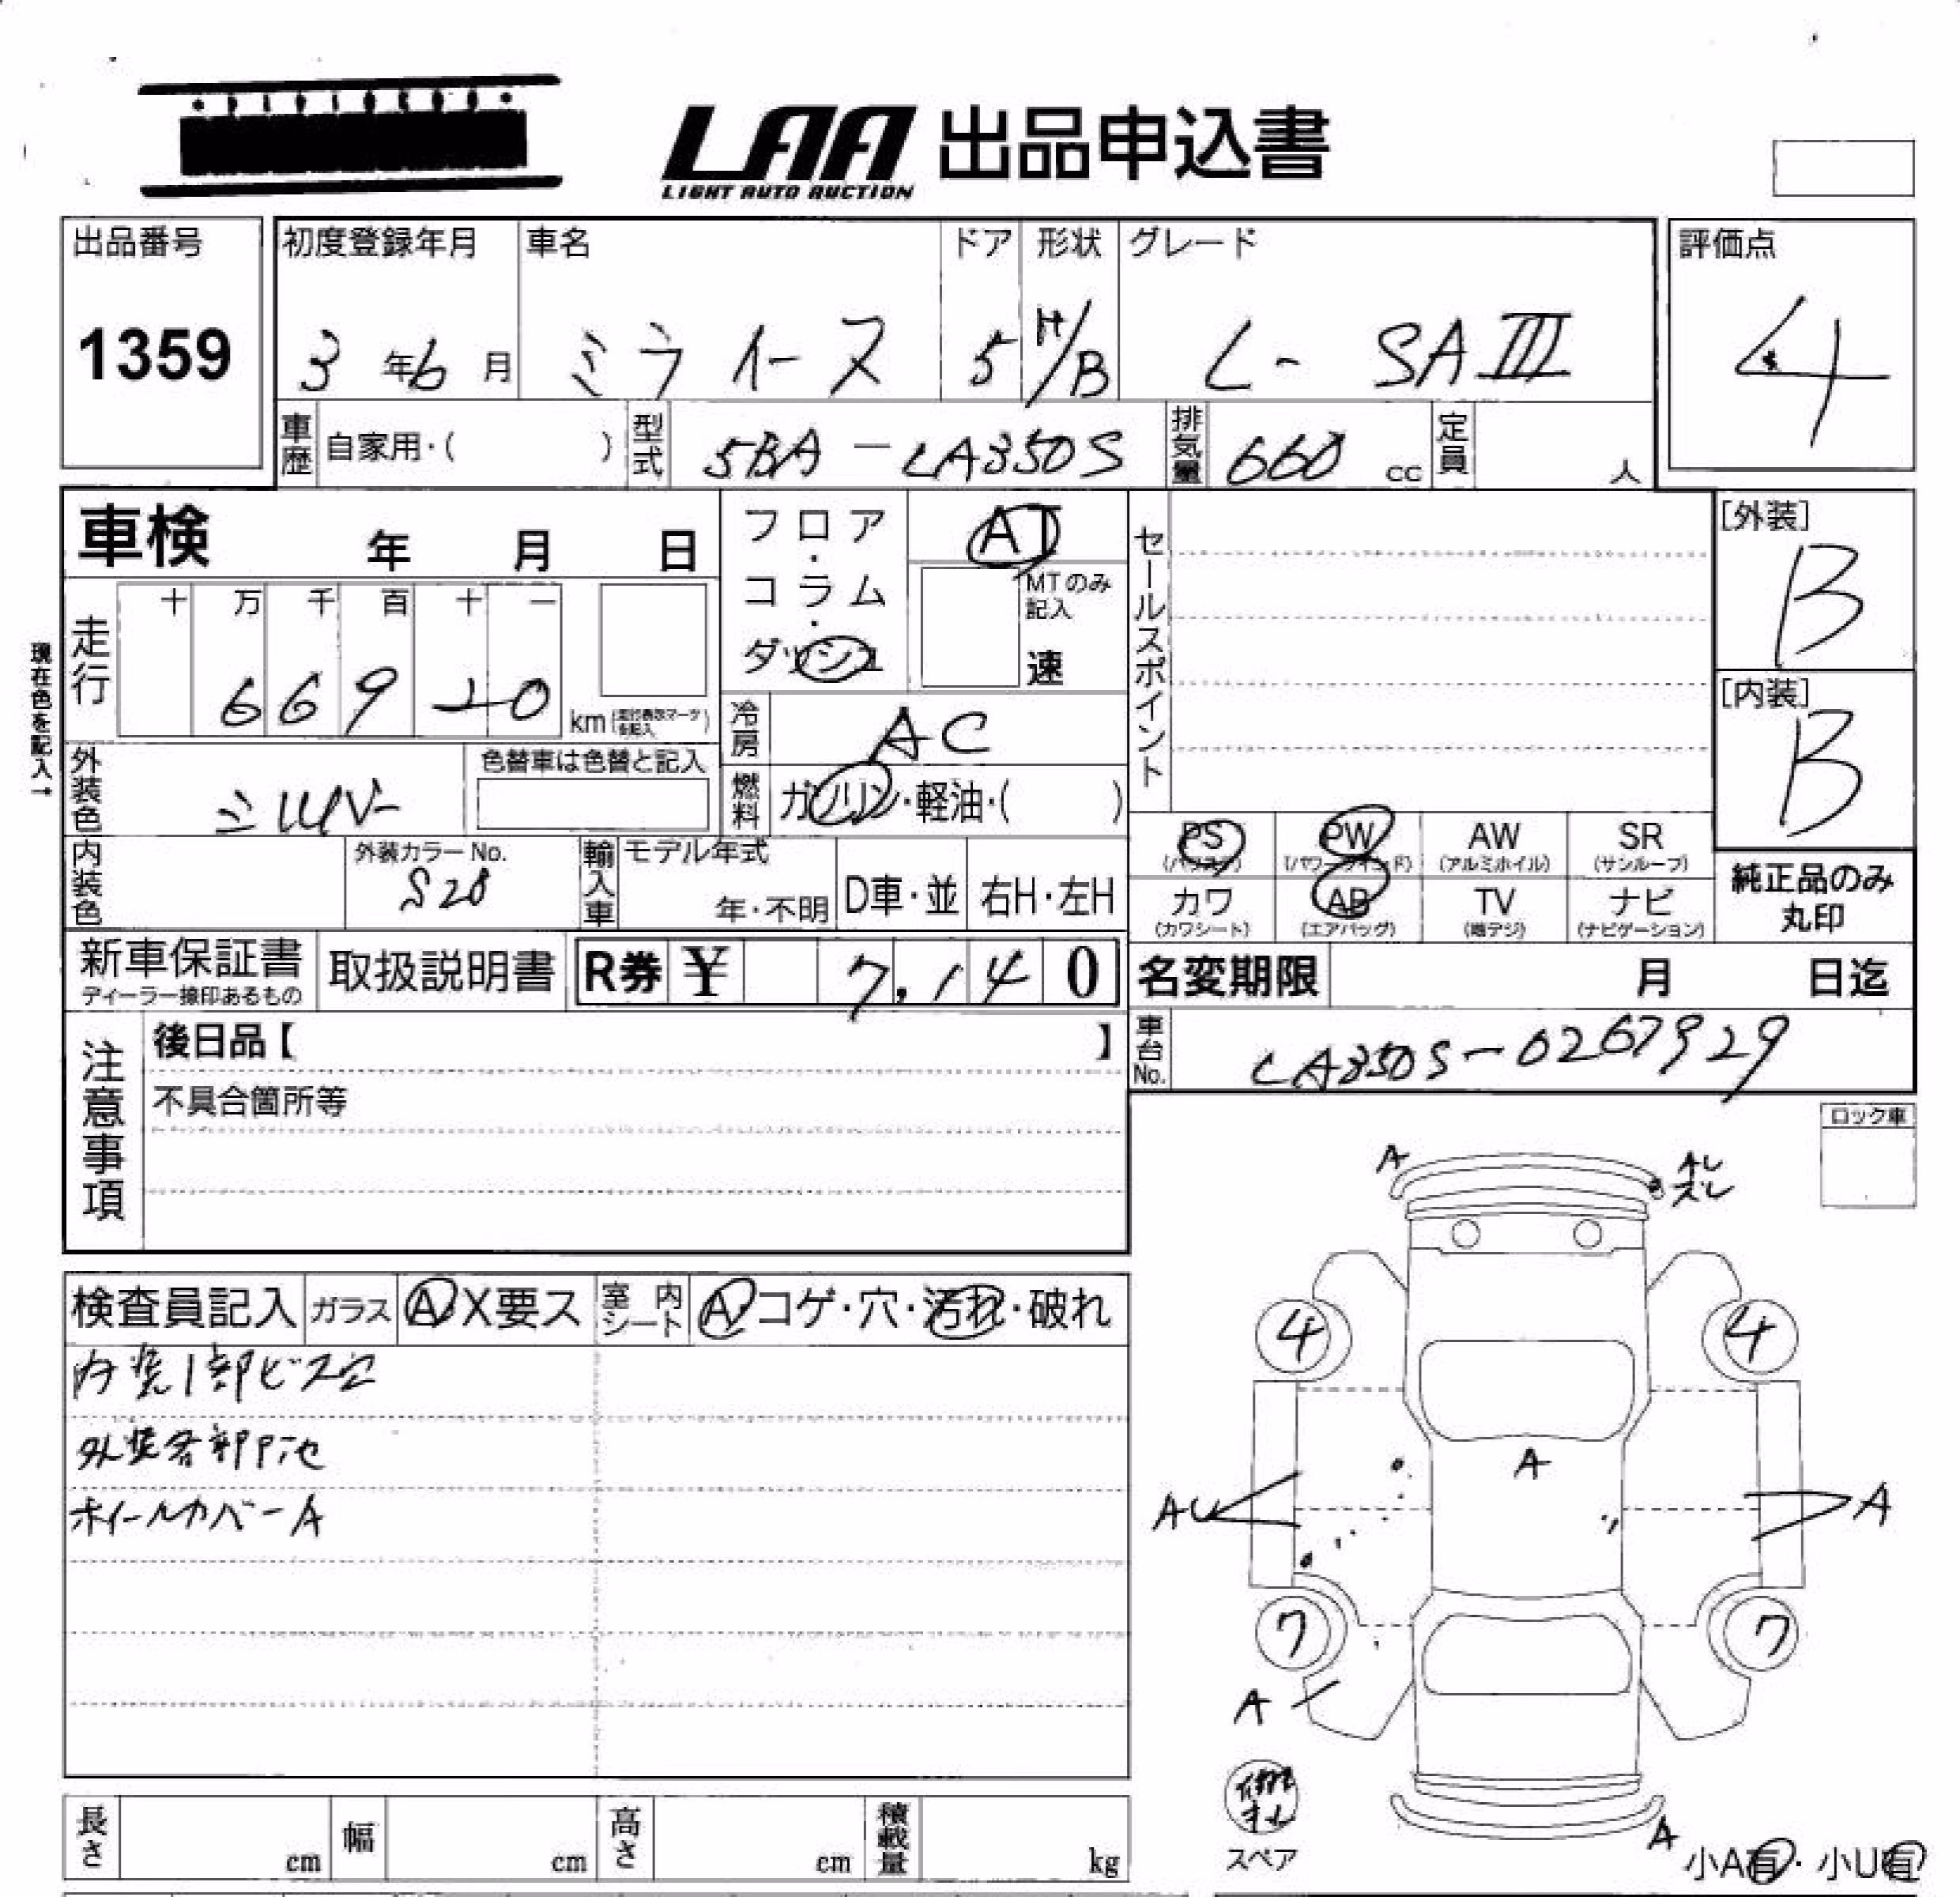 LAA 出品申込書
LIGHT AUTO AUCTION
出品番号
1359
初度登録年月
3年6月
車名
ミライース
ドア
5
形状
H/B
グレード
L- SAIII
評価点
4
車歴 自家用・( )
型式 5BA-LA350S
排気量 660 cc
定員 人
車検 年 月 日
フロア・コラム・ダッシュ
AT
MTのみ記入
速
セールスポイント
[外装]
B
[内装]
B
現在色を記入→
走行
十 万 千 百 十 一
6 6 9 20
km
冷房 AC
外装色 シルバー
色替車は色替と記入
燃料 ガソリン・軽油・( )
内装色
外装カラーNo.
S28
輸入車
モデル年式
年・不明
D車・並
右H・左H
PS
(パワステ)
PW
(パワーウインド)
AW
(アルミホイル)
SR
(サンルーフ)
カワ
(カワシート)
AB
(エアバッグ)
TV
(地デジ)
ナビ
(ナビゲーション)
純正品のみ
丸印
新車保証書
ディーラー捺印あるもの
取扱説明書
R券 ¥ 7,140
名変期限 月 日迄
注意事項
後日品【 】
不具合箇所等
車台No. LA350S-0267929
ロック車
A
AL
ズレ
検査員記入
ガラス A・X要ス
室内シート A・コゲ・穴・汚れ・破れ
内装1部ビス穴
外装各部P池
ホイールカバーA
4
4
A
AU
A
7
7
A
スペア
A
小A有・小U有
長さ cm
幅 cm
高さ cm
積載量 kg